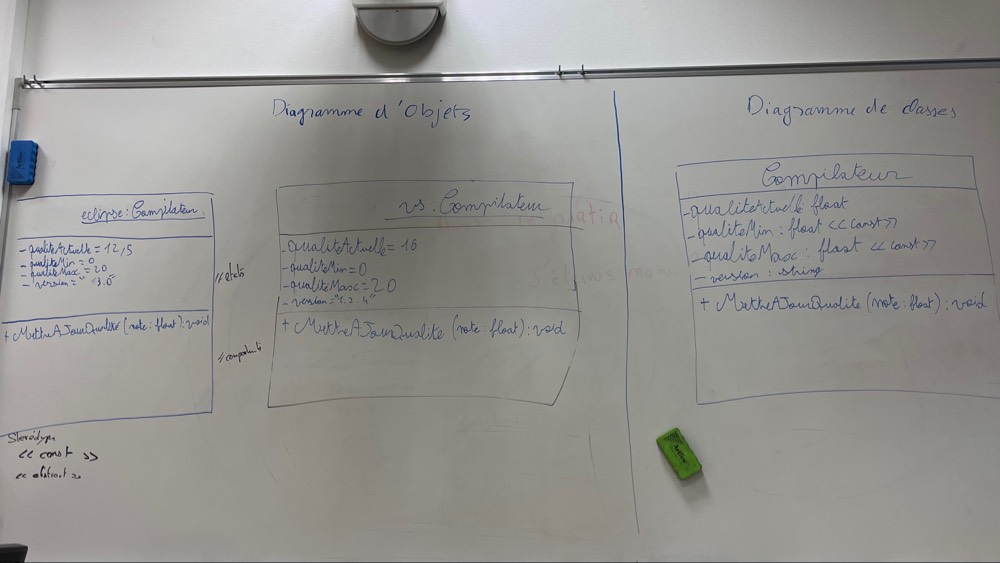 Diagramme d'Objets
eclipse : Compilateur
- qualiteActuelle = 12,5
- qualiteMin = 0
- qualiteMax = 20
+ MettreAJourQualité (note : float) : void
Stéréotype
<< const >>
<< abstract >>
vs : Compilateur
- qualiteActuelle = 16
- qualiteMin = 0
- qualiteMax = 20
- version = "1.2.4"
+ MettreAJourQualite (note : float) : void
Diagramme de classes
Compilateur
- qualiteActuelle float
- qualiteMin : float << const >>
- qualiteMax : float << const >>
- version : string
+ MettreAJourQualite (note : float) : void